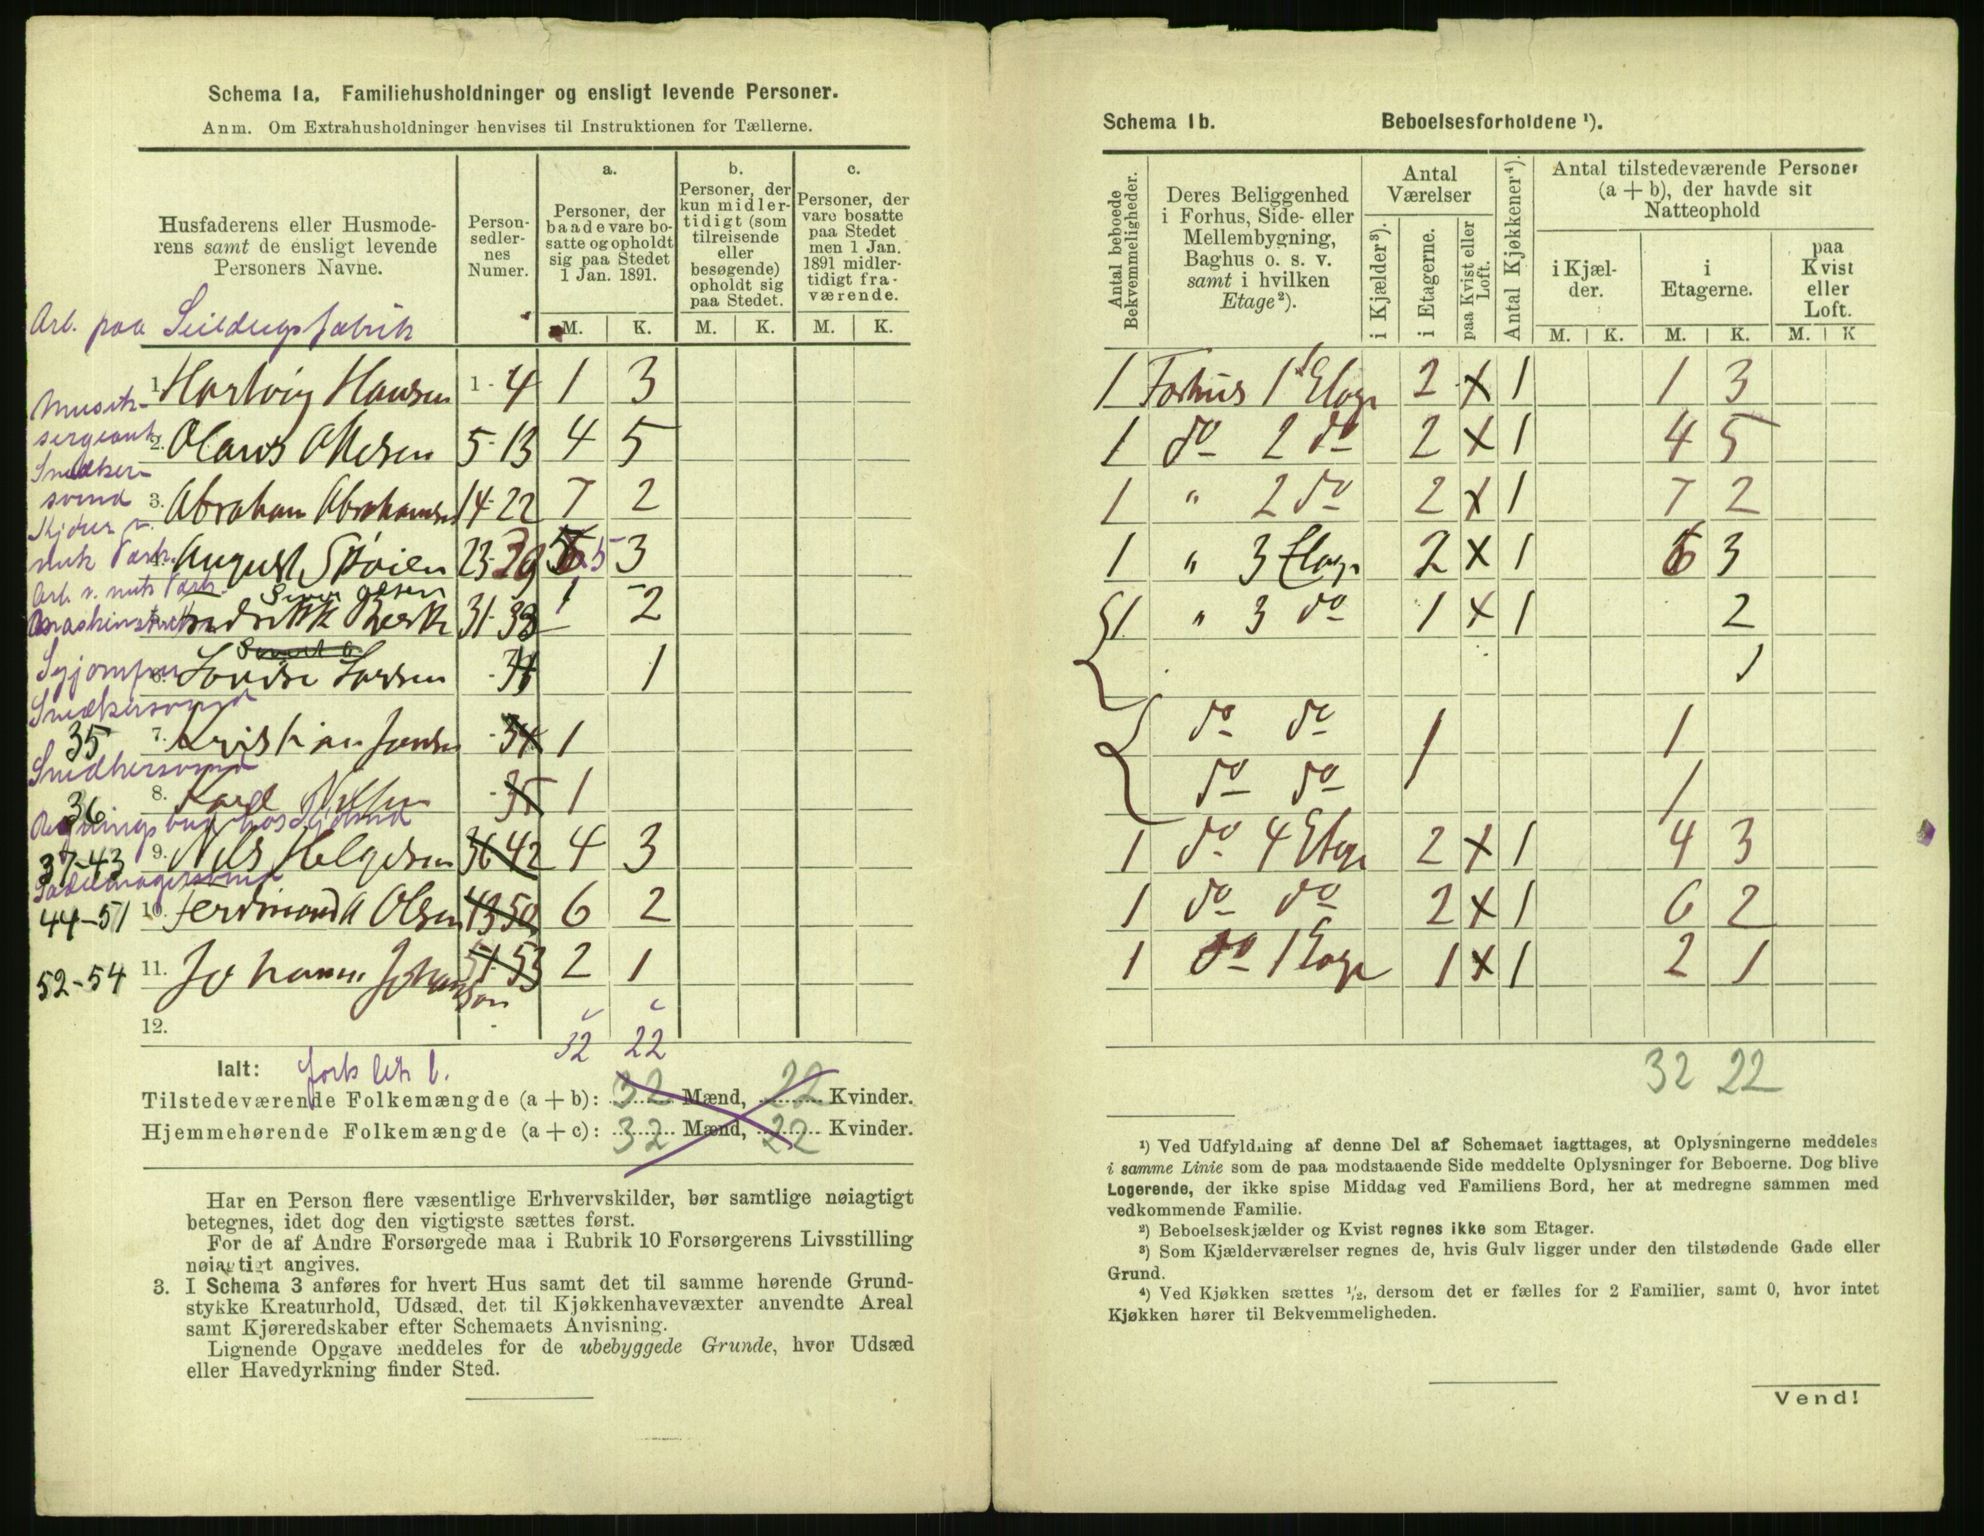 Schema 1a. Familiehusholdninger og ensligt levende Personer.
Anm. Om Extrahusholdninger henvises til Instruktionen for Tællerne.
Husfaderens eller Husmode-
rens samt de ensligt levende
Personers Navne.
Person-
sedler-
nes
Numer.
a.
Personer, der
baade vare bo-
satte og opholdt
sig paa Stedet
1 Jan. 1891.
b.
Personer, der
kun midler-
tidigt (som
tilreisende
eller
besøgende)
opholdt sig
paa Stedet.
c.
Personer, der
vare bosatte
paa Stedet
men 1 Jan.
1891 midler-
tidigt fra-
værende.
M. K. M. K. M. K.
Arb. paa Seildugsfabrik
1. Hartvig Hansen 1-4 1 3
Musik-
sergeant
2. Olaus Olesen 5-13 4 5
Snedker-
svend
3. Abraham Abrahamsen 14-22 7 2
4. August Støien 23- 5 3
31-33 1 2
6. Lovise Larsen 1
Snedkersvend
35 7. Kristian Jensen 34 1
Snedkersvend
36 8. Karl 35 1
37-43 9. Nils Helgesen 36 42 4 3
44-51 10. Ferdinand A Olsen 43 50 6 2
52-54 11. Johann Johansson 51-53 2 1
12.
32 22
Ialt:
Tilstedeværende Folkemængde (a + b): 32 Mænd, 22 Kvinder.
Hjemmehørende Folkemængde (a + c): 32 Mænd, 22 Kvinder.
Har en Person flere væsentlige Erhvervskilder, bør samtlige nøiagtigt
betegnes, idet dog den vigtigste sættes først.
For de af Andre Forsørgede maa i Rubrik 10 Forsørgerens Livsstilling
nøiagtigt angives.
3. I Schema 3 anføres for hvert Hus samt det til samme hørende Grund-
stykke Kreaturhold, Udsæd, det til Kjøkkenhavevæxter anvendte Areal
samt Kjøreredskaber efter Schemaets Anvisning.
Lignende Opgave meddeles for de ubebyggede Grunde, hvor Udsæd
eller Havedyrkning finder Sted.
Schema 1b. Beboelsesforholdene ¹).
Antal beboede
Bekvemmeligheder.
Deres Beliggenhed
i Forhus, Side- eller
Mellembygning,
Baghus o. s. v.
samt i hvilken
Etage²).
Antal
Værelser
i Kjælder³).
i Etagerne.
paa Kvist eller
Loft.
Antal Kjøkkener⁴).
Antal tilstedeværende Personer
(a + b), der havde sit
Natteophold
i Kjæl-
der.
i
Etagerne.
paa
Kvist
eller
Loft.
M. K. M. K. M. K
1 Forhus 1 Etage 2 x 1 1 3
1 do 2 do 2 x 1 4 5
1 " 2 do 2 x 1 7 2
1 " 3 Etage 2 x 1 3
1 " 3 do 1 x 1 2
1
do do 1 1
do do 1
1 do 4 Etage 2 x 1 4 3
1 do do 2 x 1 6 2
1 do 1 Etage 1 x 1 2 1
32 22
¹) Ved Udfyldning af denne Del af Schemaet iagttages, at Oplysningerne meddeles
i samme Linie som de paa modstaaende Side meddelte Oplysninger for Beboerne. Dog blive
Logerende, der ikke spise Middag ved Familiens Bord, her at medregne sammen med
vedkommende Familie.
²) Beboelseskjælder og Kvist regnes ikke som Etager.
³) Som Kjælderværelser regnes de, hvis Gulv ligger under den tilstødende Gade eller
Grund.
⁴) Ved Kjøkken sættes ½, dersom det er fælles for 2 Familier, samt 0, hvor intet
Kjøkken hører til Bekvemmeligheden.
Vend!